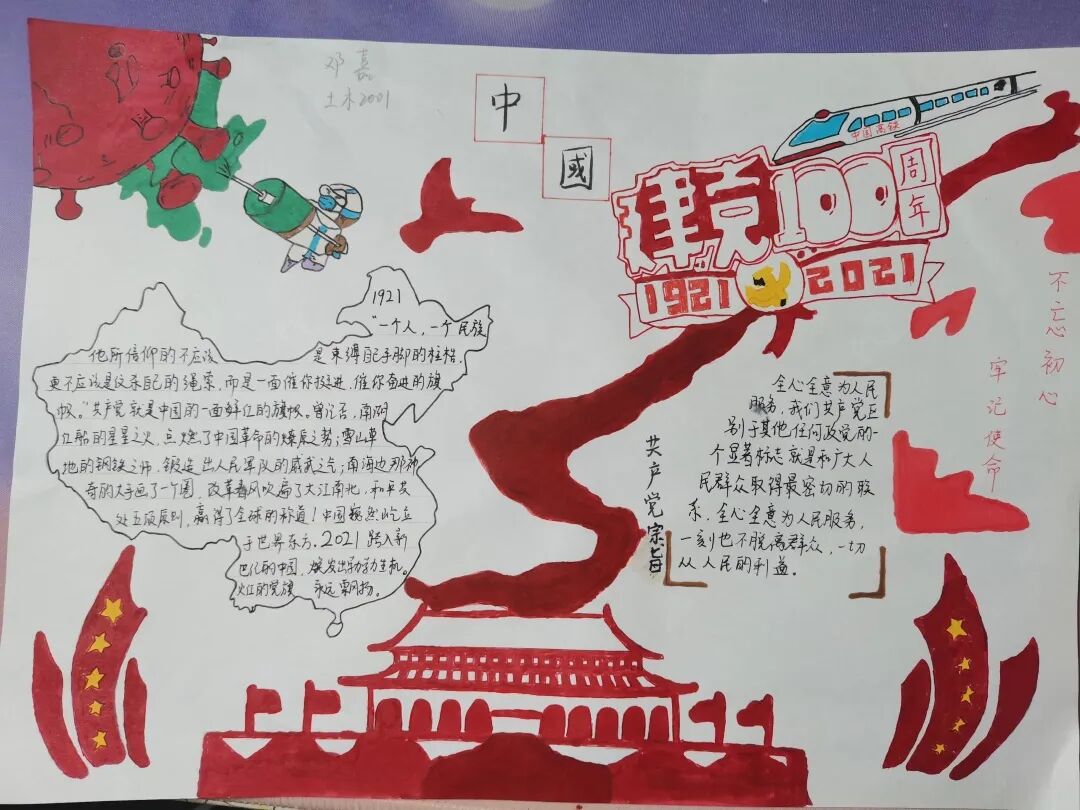 邓嘉
土木2001
中
國
中国高铁
建党100周年
1921 2021
不忘初心
牢记使命
1921
“一个人，一个民族
他所信仰的不应该是束缚自己手脚的桎梏，
更不应该是绞杀自己的绳索，而是一面催你投进，催你奋进的旗
帜。”共产党就是中国的一面鲜红的旗帜。曾记否，南湖
红船的星星之火，点燃了中国革命的燎原之势；雪山草
地的钢铁之师，锻造出人民军队的威武之气；南海边那神
奇的大手画了一个圈，改革春风吹遍了大江南北，和平共
处五项原则，赢得了全球的称道！中国巍然屹立
于世界东方。2021踏入新
世纪的中国，焕发出勃勃生机。
火红的党旗 永远飘扬。
共产党宗旨
全心全意为人民
服务，我们共产党区
别于其他任何政党的一
个显著标志就是和广大人
民群众取得最密切的联
系，全心全意为人民服务，
一刻也不脱离群众，一切
从人民的利益。